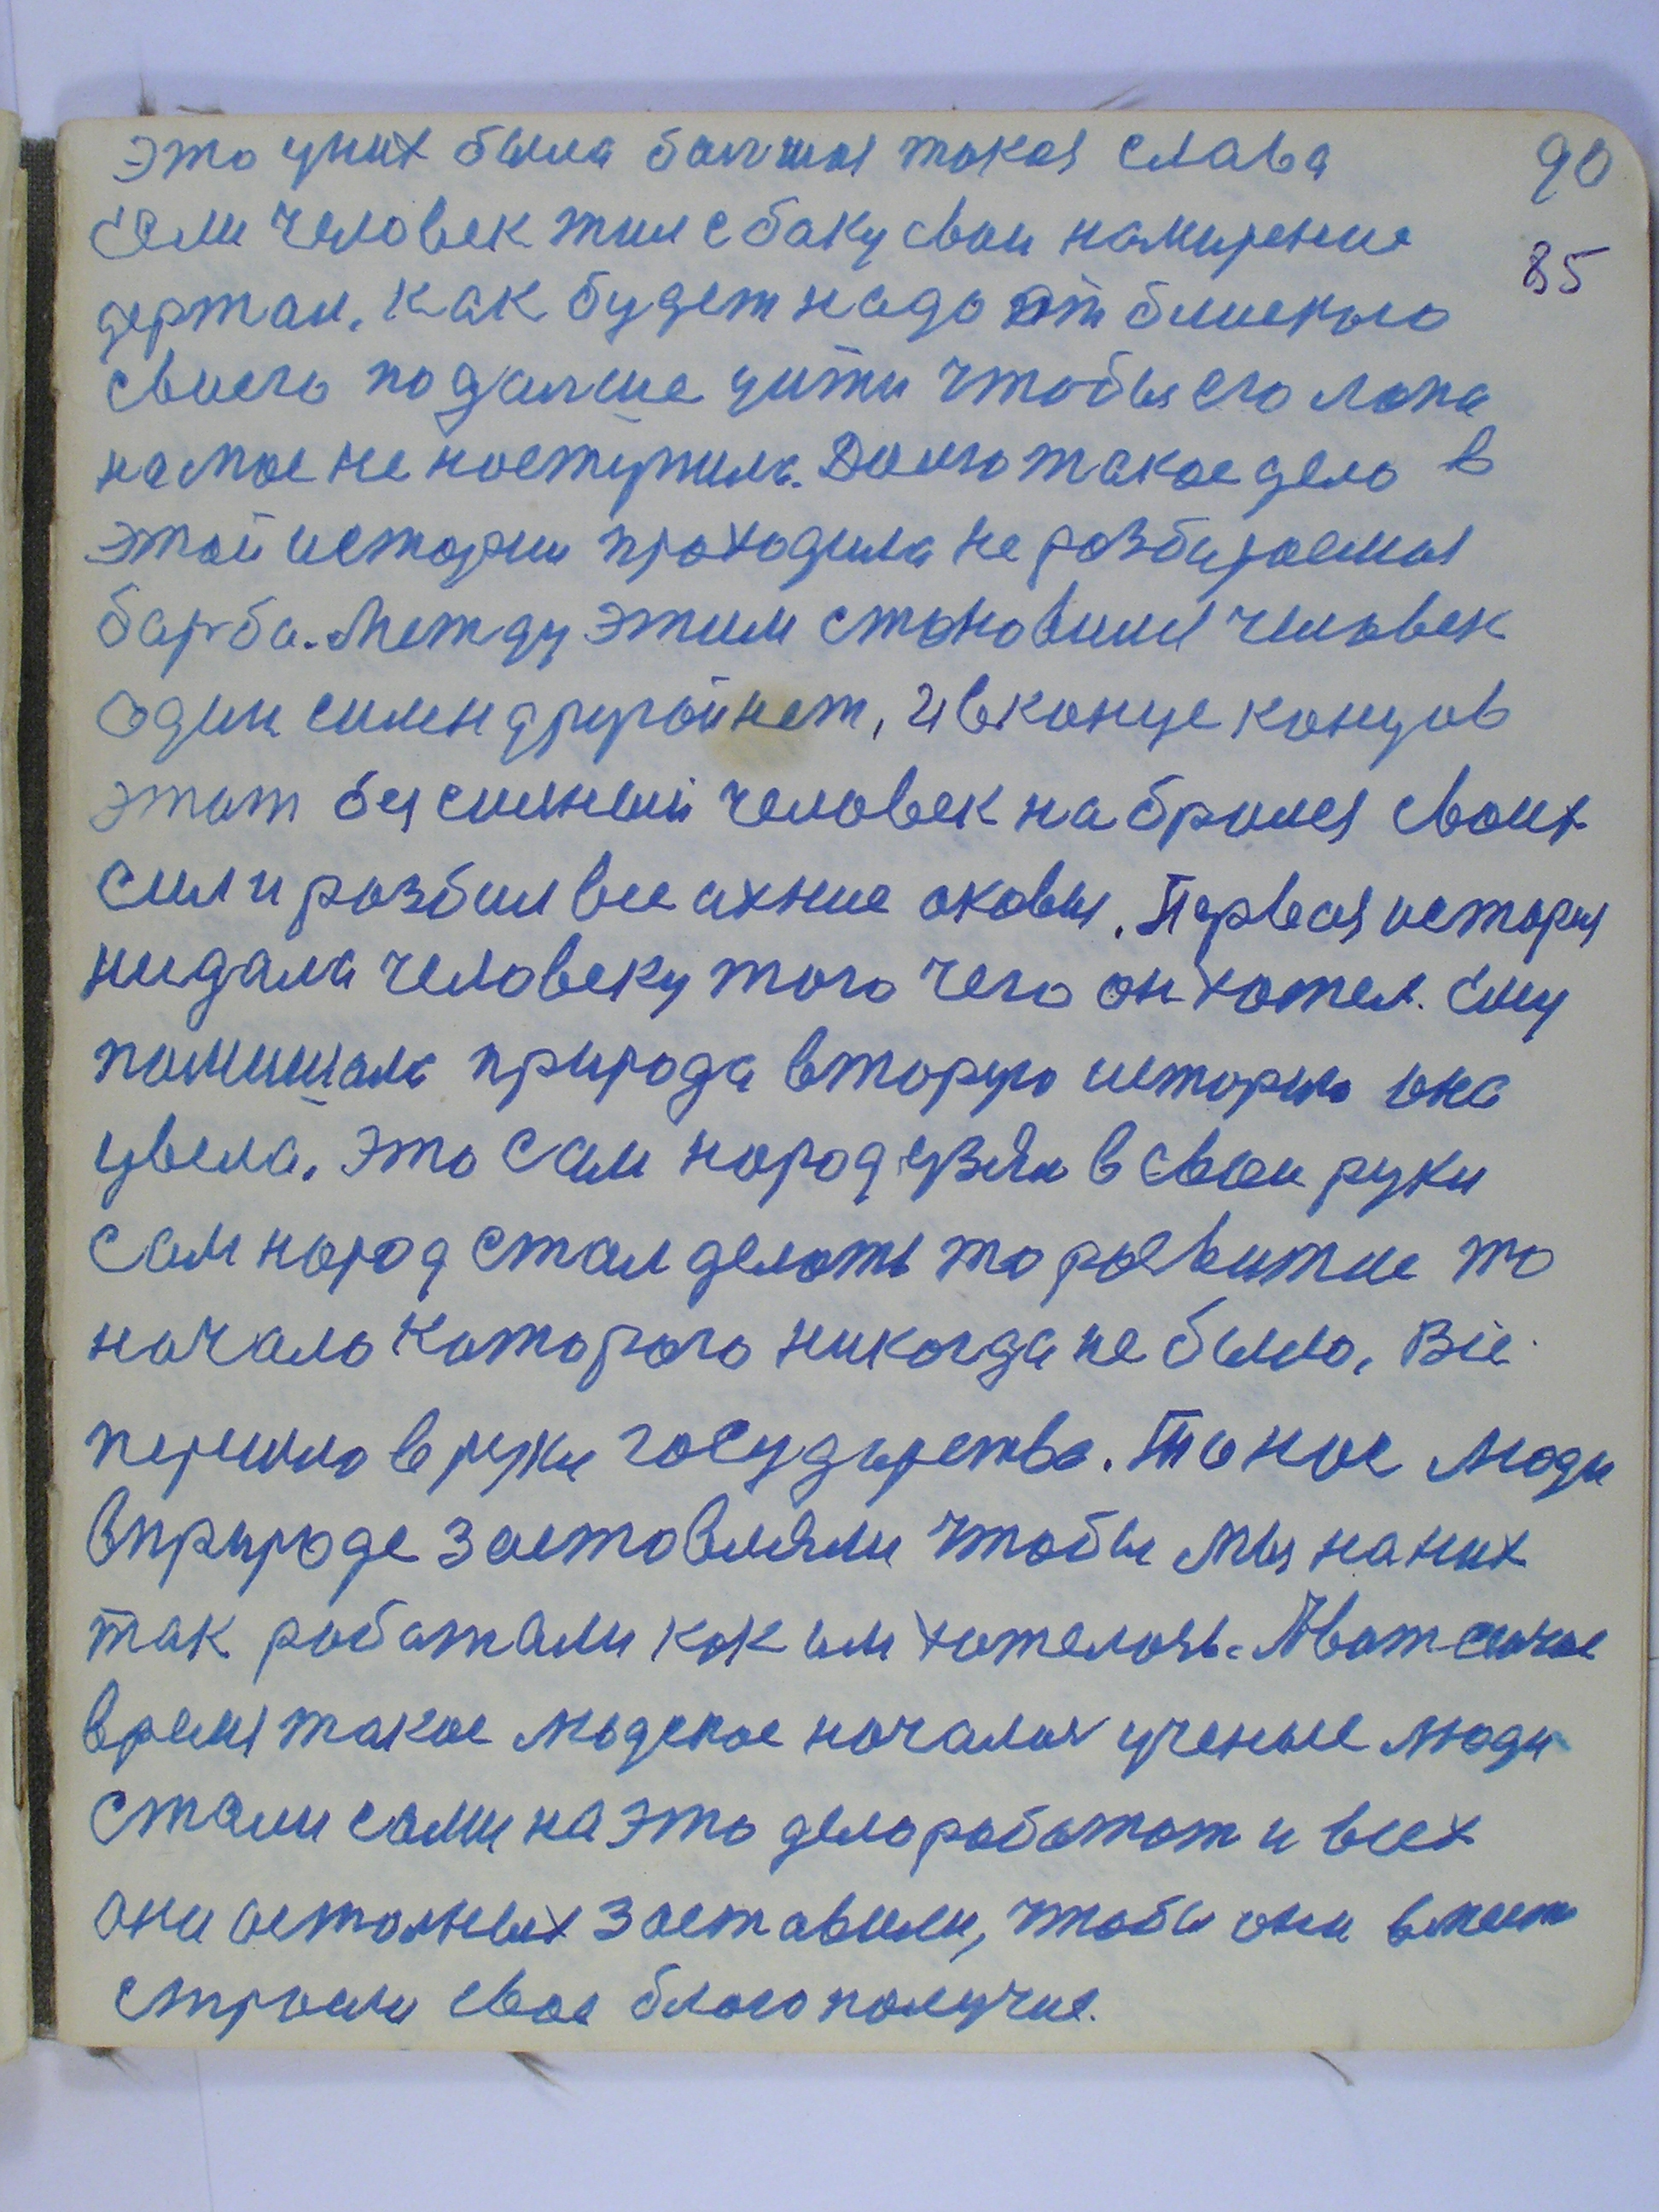 это уних была балшая такая слава
90
если человек жил сбаку свои намирение
85
держал. Как будет надо от блиского
своего подалше уйти чтобы его лапа
на мое не наступила. Долго такое дело в
этой истории проходила не розбираемая
барба. Между этим становился человек
один силен другой нет, и вконце концов
этот безсилный человек набрался своих
сил и розбил все ихние оковы. Первая история
нидала человеку того чего он хотел. ему
помишала природа вторую историю она
увела. Это сам народ узял в свои руки
сам народ стал делать то розвитие то
начало каторого никогда не было. Все
перешло в руки государства. Такие люди
в природе заставляли чтобы мы на них
так работали как им хотелось. А вот
время такое людское началось ученые люди
стали сами на это дело работат и всех
они осталных заставили, чтобы они вмест
строили свое благополучие.